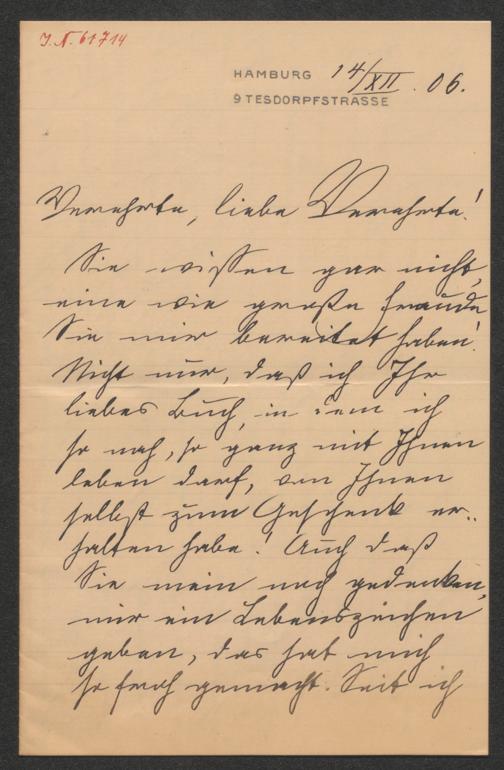 J.N. 61714
HAMBURG 14/XII. 06.
9 TESDORPFSTRASSE
Verehrte, liebe Verehrte!
Sie wissen gar nicht,
eine wie große Freude
Sie mir bereitet haben!
Nicht nur, daß ich Ihr
liebes Buch, in dem ich
so nah, so ganz mit Ihnen
leben darf, von Ihnen
selbst zum Geschenk er-
halten habe! Auch daß
Sie mein noch gedenken,
mir ein Lebenszeichen
geben, das hat mich
so froh gemacht. Seit ich